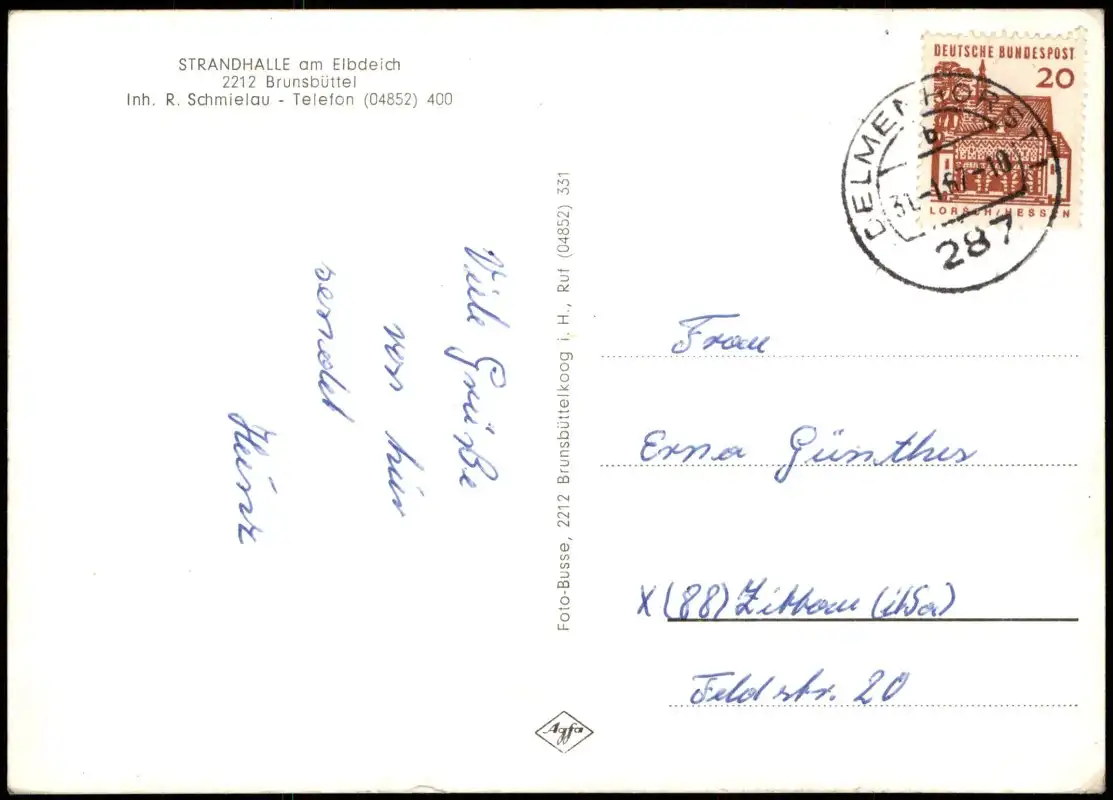 STRANDHALLE am Elbdeich
2212 Brunsbüttel
Inh. R. Schmielau - Telefon (04852) 400
Viele Grüße
von hier
sendet
Heinz
Foto-Busse, 2212 Brunsbüttelkoog i. H., Ruf (04852) 331
DEUTSCHE BUNDESPOST
20
LORSCH/HESSEN
DELMENHORST 1
b
31.-1.67-10
287
Frau
Erna Günther
X (88) Zittau (i/Sa)
Feldstr. 20
Agfa